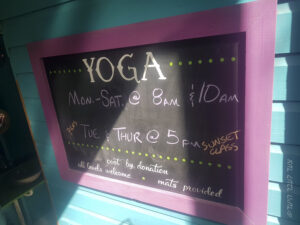 YOGA
MON.-SAT. @ 8AM & 10AM
TUE & THUR @ 5PM
SUNSET
CLASS
cost by donation
all levels welcome • mats provided